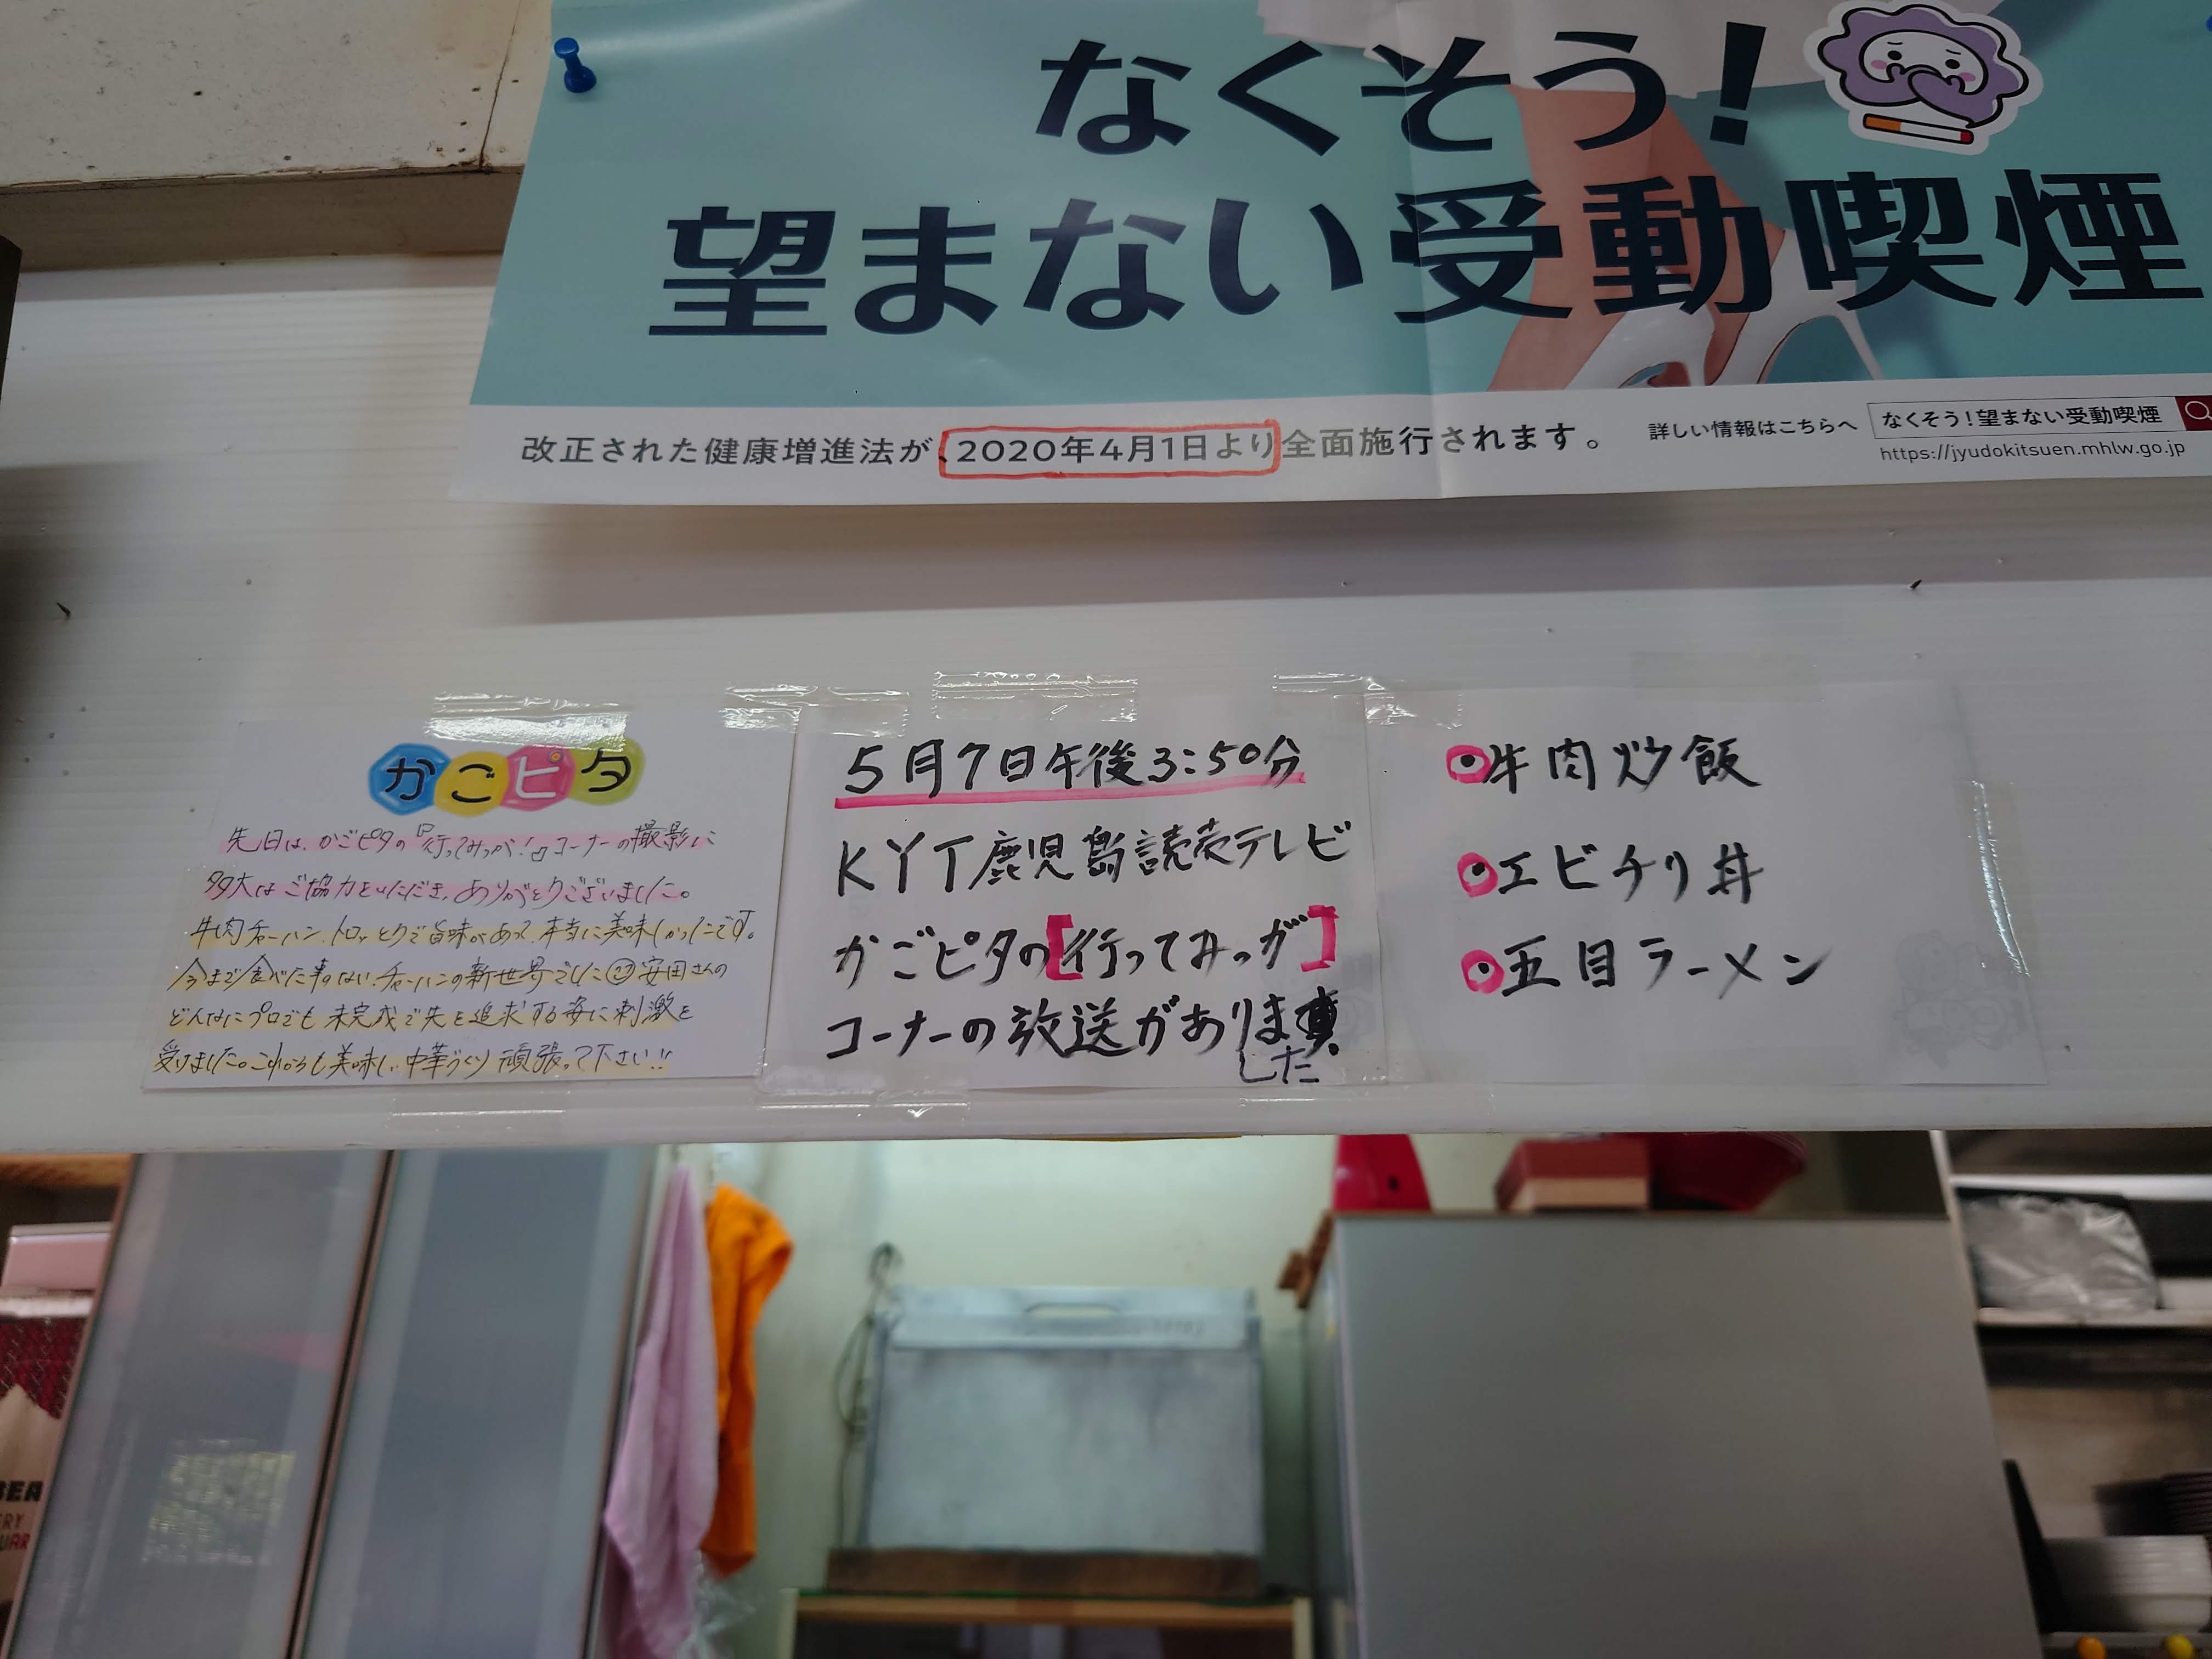 なくそう!
望まない受動喫煙
改正された健康増進法が、2020年4月1日より全面施行されます。
詳しい情報はこちらへ
なくそう!望まない受動喫煙
https://jyudokitsuen.mhlw.go.jp
かごピタ
先日は、かごピタの『行ってみっが!』コーナーの撮影に
多大なご協力をいただき、ありがとうございました。
牛肉チャーハン、トロッとりで旨味があって、本当に美味しかったです。
今まで食べた事のない、チャーハンの新世界でした 安田さんの
どんなにプロでも未完成で先を追求する姿に刺激を
受けました。これからも美味しい中華づくり頑張って下さい!!
5月7日午後3:50分
KYT鹿児島読売テレビ
かごピタの[行ってみっが]
コーナーの放送がありま
した
牛肉炒飯
エビチリ丼
五目ラーメン